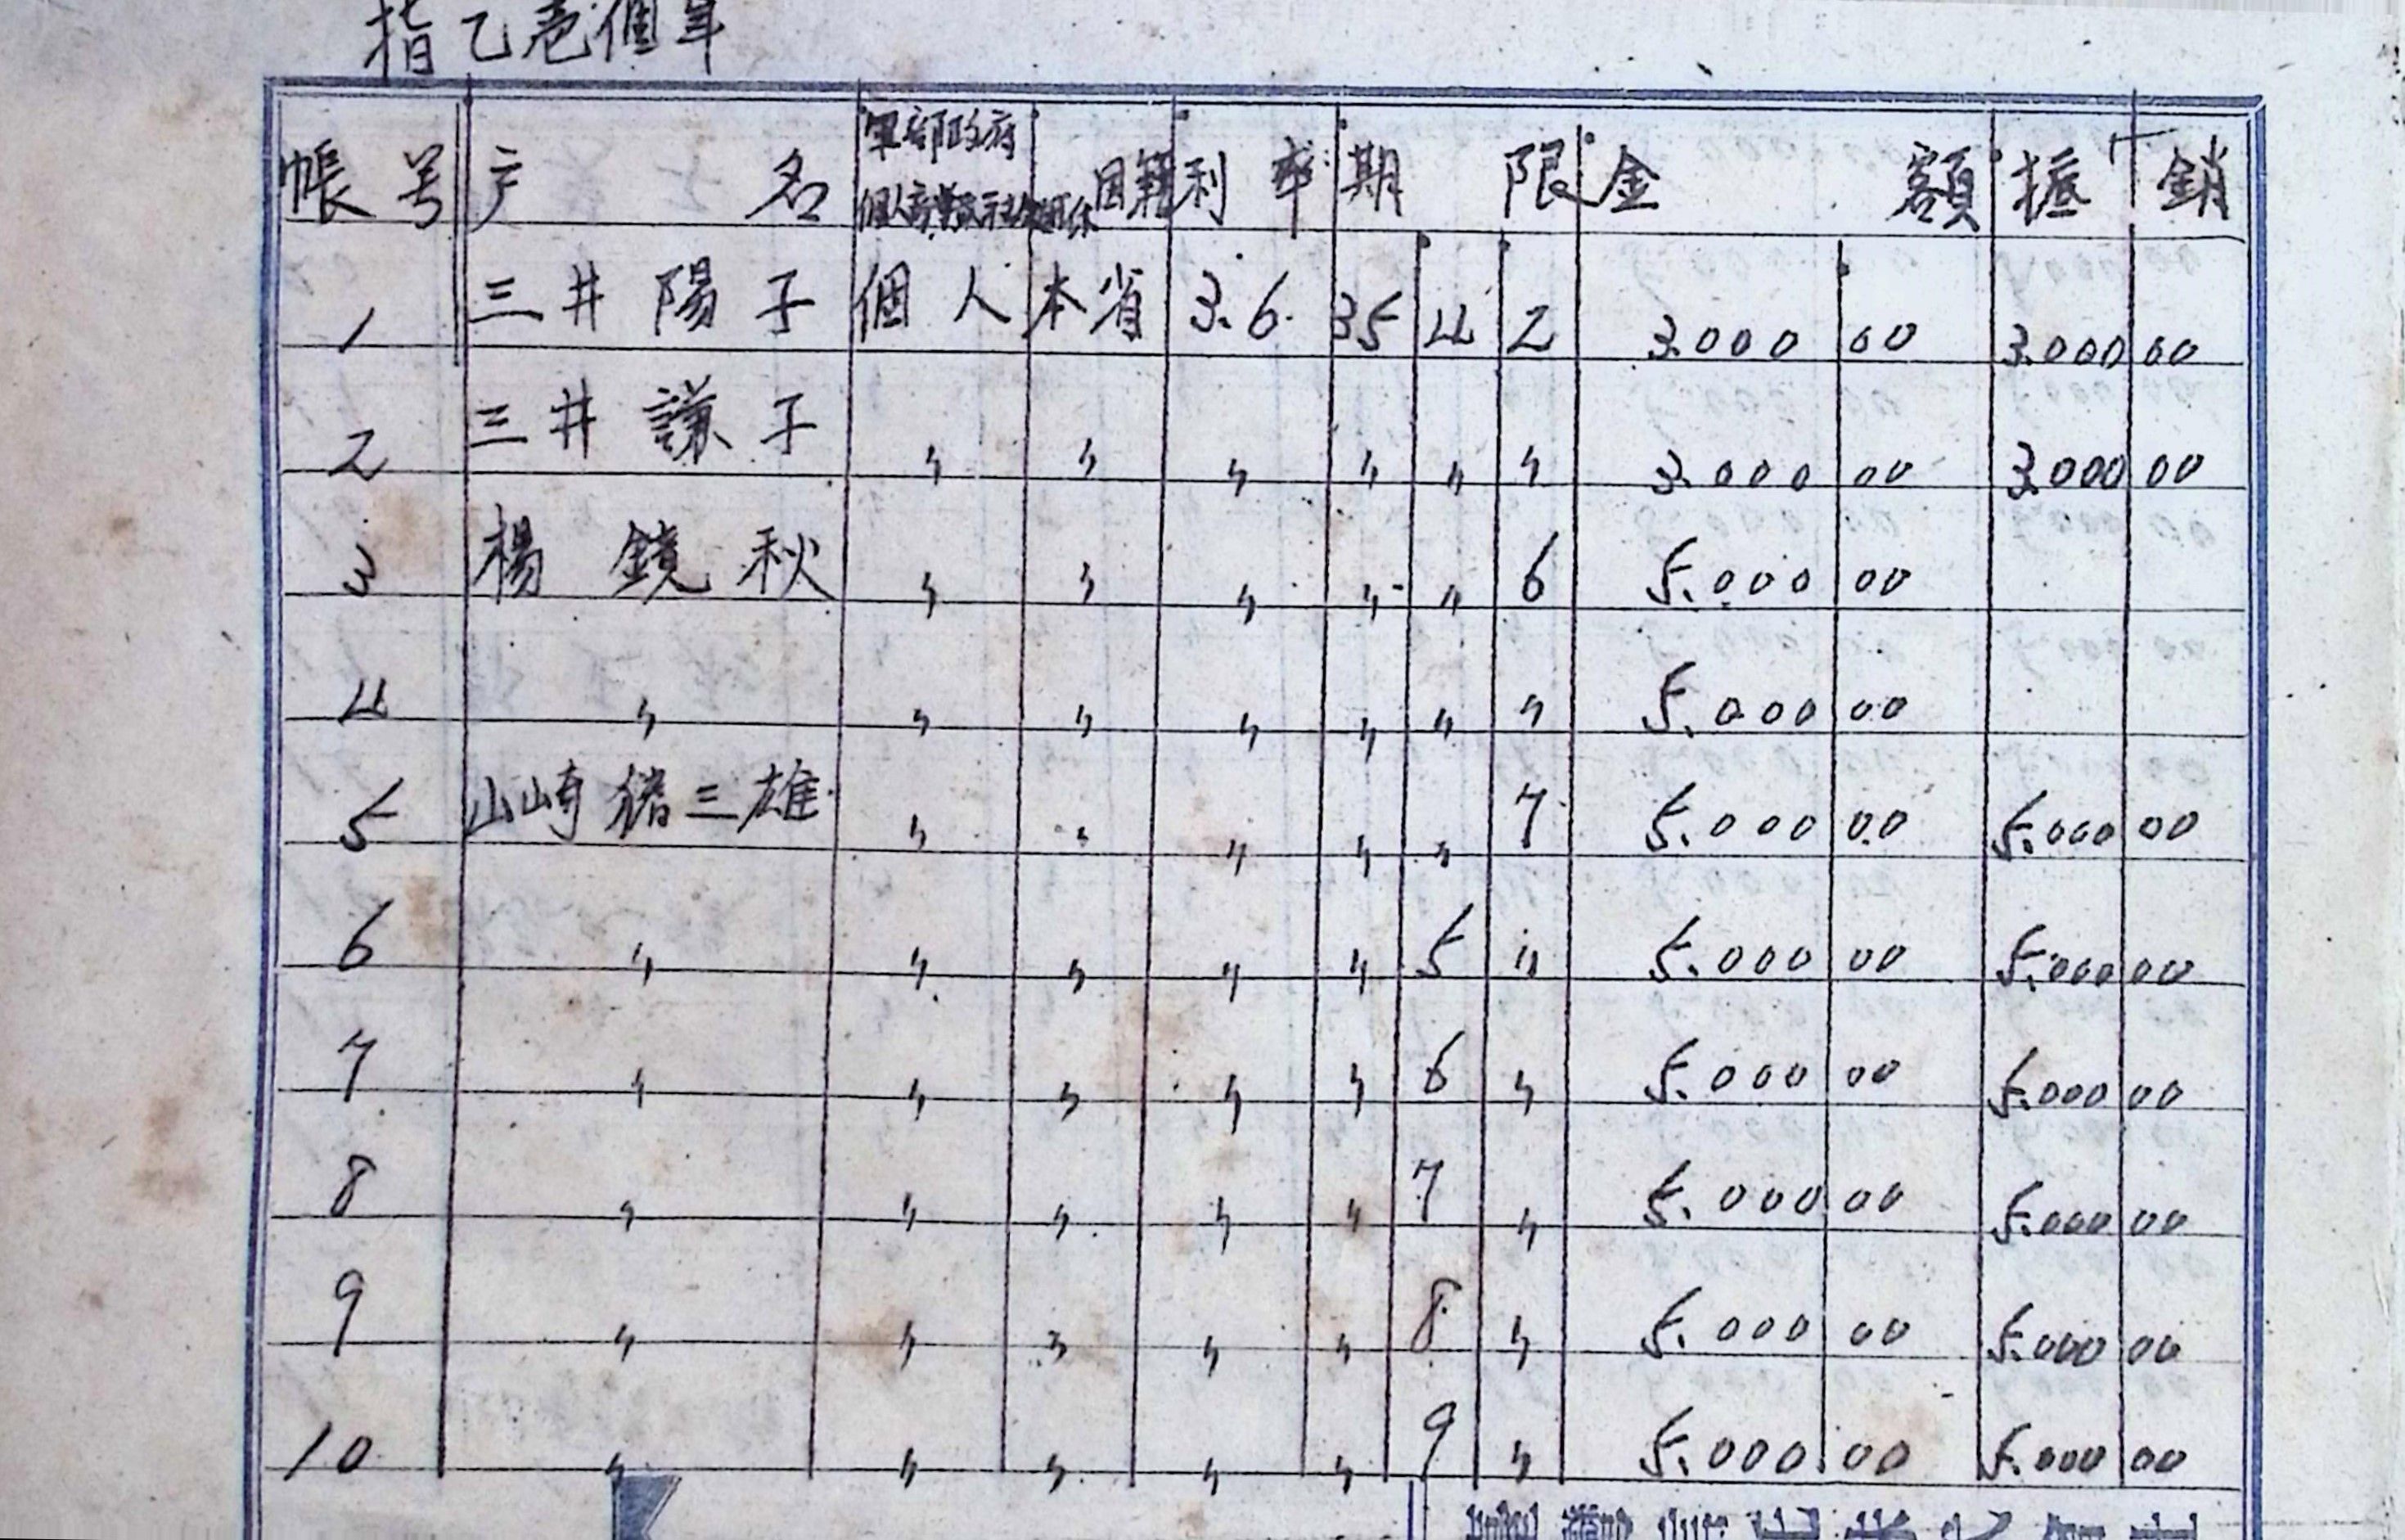 指乙壱個年
帳号 戸名 軍部政府 個人 国籍 利率 期限 金額 抵銷
1 三井陽子 個人 本省 3.6. 35 4 2 3.000 00 3.000 00
2 三井謙子 〃 〃 〃 〃 〃 〃 3.000 00 3.000 00
3 楊鏡秋 〃 〃 〃 〃 〃 6 5.000 00
4 〃 〃 〃 〃 〃 〃 〃 5.000 00
5 山崎猪三雄 〃 〃 〃 〃 〃 7 5.000 00 5.000 00
6 〃 〃 〃 〃 〃 5 〃 5.000 00 5.000 00
7 〃 〃 〃 〃 〃 6 〃 5.000 00 5.000 00
8 〃 〃 〃 〃 〃 7 〃 5.000 00 5.000 00
9 〃 〃 〃 〃 〃 8 〃 5.000 00 5.000 00
10 〃 〃 〃 〃 〃 9 〃 5.000 00 5.000 00